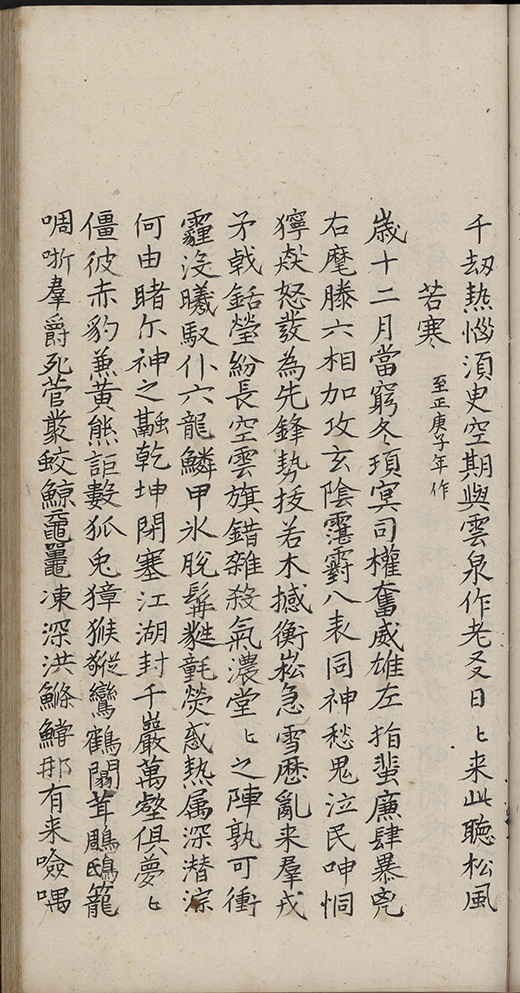 千刼熱惱須臾空期與雲泉作老叉日〻来此聴松風
苦寒 至正庚子年作
歳十二月當窮冬頊冥司權奮威雄左指蜚廉肆暴兇
右麾滕六相加攻玄陰霮䨴八表同神愁鬼泣民呻恫
獰猋怒發為先鋒勢拔若木撼衡崧急雪歴亂来羣戎
矛戟銛瑩紛長空雲旗錯雜殺氣濃堂〻之陣孰可衝
霾沒曦馭仆六龍鱗甲氷脫髯氄熒惑熱属深潜淙
何由睹尓神之融乾坤閉塞江湖封千巖萬壑俱夢〻
僵彼赤豹兼黄熊詎數狐兎獐猴猣鸞鶴闒茸鵰鴟籠
啁哳羣爵死菅藂蛟鯨黿鼉凍深洪鰷鱨那有来噞喁